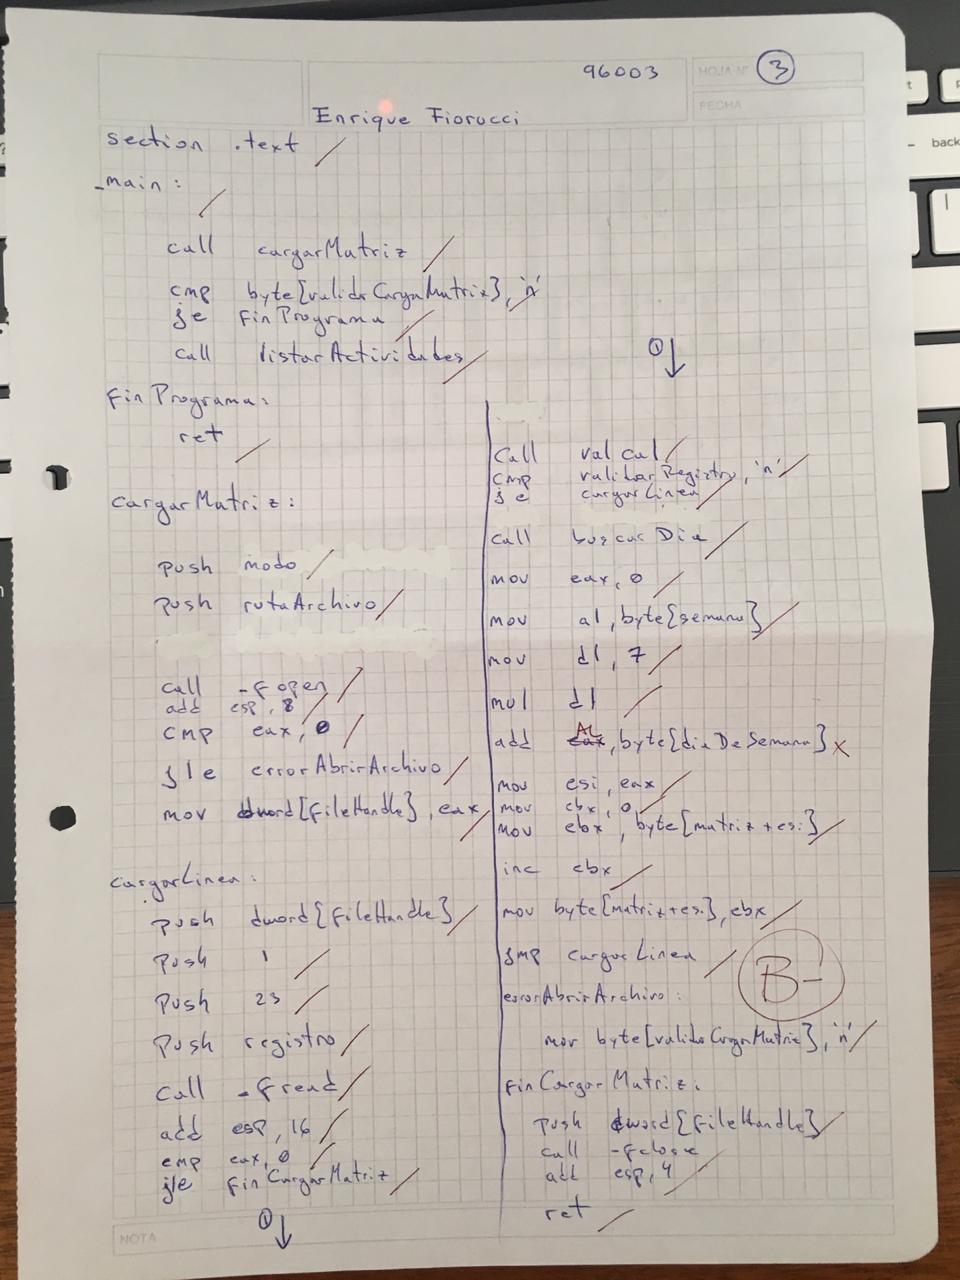 96003
HOJA Nº 3
FECHA
Enrique Fiorucci
section .text
_main:
call cargarMatriz
cmp byte[validoCargaMatriz], 'n'
je finPrograma
call listarActividades
①↓
finPrograma:
ret
cargarMatriz:
push modo
push rutaArchivo
call _fopen
add esp, 8
cmp eax, 0
jle errorAbrirArchivo
mov dword[fileHandle], eax
cargarLinea:
push dword[fileHandle]
push 1
push 23
push registro
call _fread
add esp, 16
cmp eax, 0
jle finCargarMatriz
①↓
call valcal
cmp validarRegistro, 'n'
je cargarLinea
call buscarDia
mov eax, 0
mov al, byte[semana]
mov dl, 7
mul dl
add eax AL, byte[diaDeSemana] x
mov esi, eax
mov ebx, 0
mov ebx, byte[matriz+esi]
inc ebx
mov byte[matriz+esi], ebx
jmp cargarLinea
B-
errorAbrirArchivo:
mov byte[validoCargaMatriz], 'n'
finCargarMatriz:
push dword[fileHandle]
call _fclose
add esp, 4
ret
NOTA
back